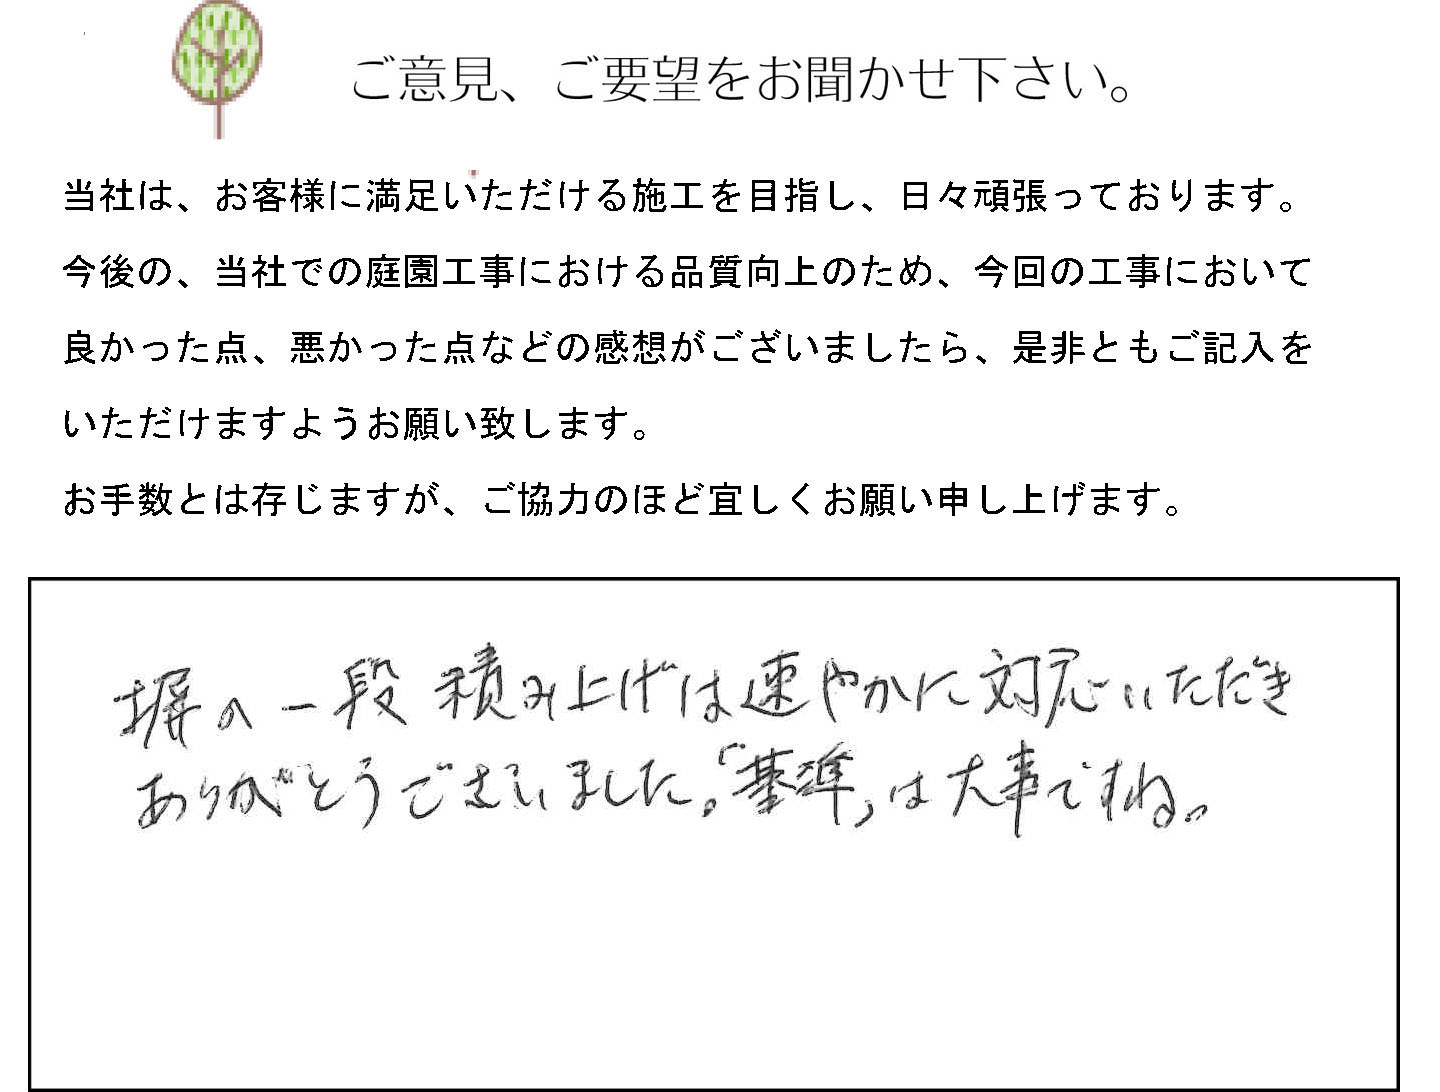 ご意見、ご要望をお聞かせ下さい。
当社は、お客様に満足いただける施工を目指し、日々頑張っております。
今後の、当社での庭園工事における品質向上のため、今回の工事において
良かった点、悪かった点などの感想がございましたら、是非ともご記入を
いただけますようお願い致します。
お手数とは存じますが、ご協力のほど宜しくお願い申し上げます。
塀の一段積み上げは速やかに対応いただき
ありがとうございました。「基準」は大事ですね。